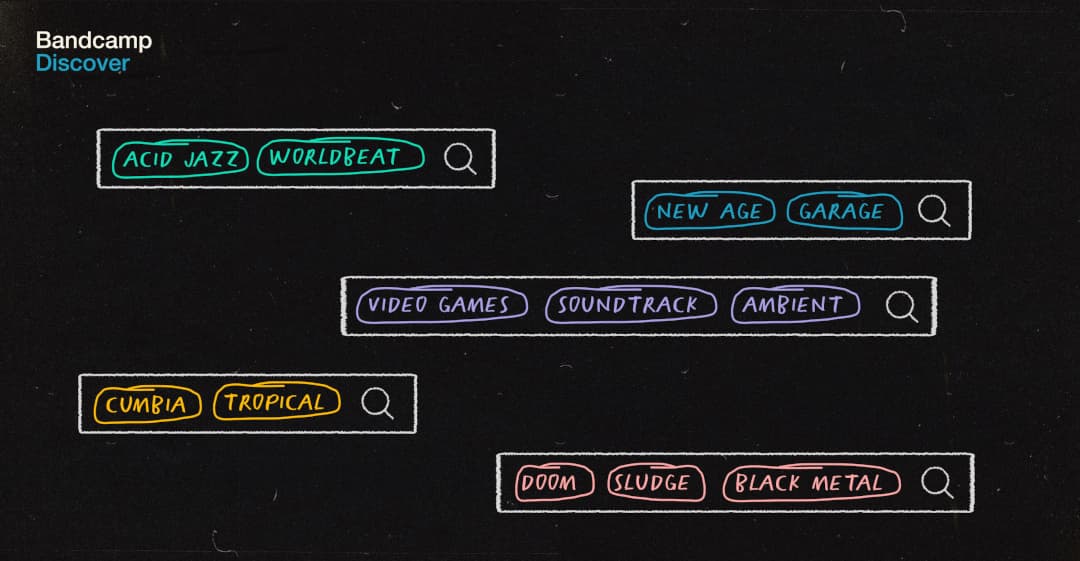 Bandcamp
Discover
ACID JAZZ WORLDBEAT
NEW AGE GARAGE
VIDEO GAMES SOUNDTRACK AMBIENT
CUMBIA TROPICAL
DOOM SLUDGE BLACK METAL